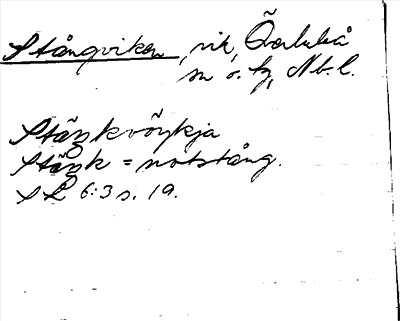 Stångviken, vik, Överluleå
sn o. tg, Nb. l.
Stãŋkvöykja
Stãŋk = notstång.
SL 6:3 s. 19.